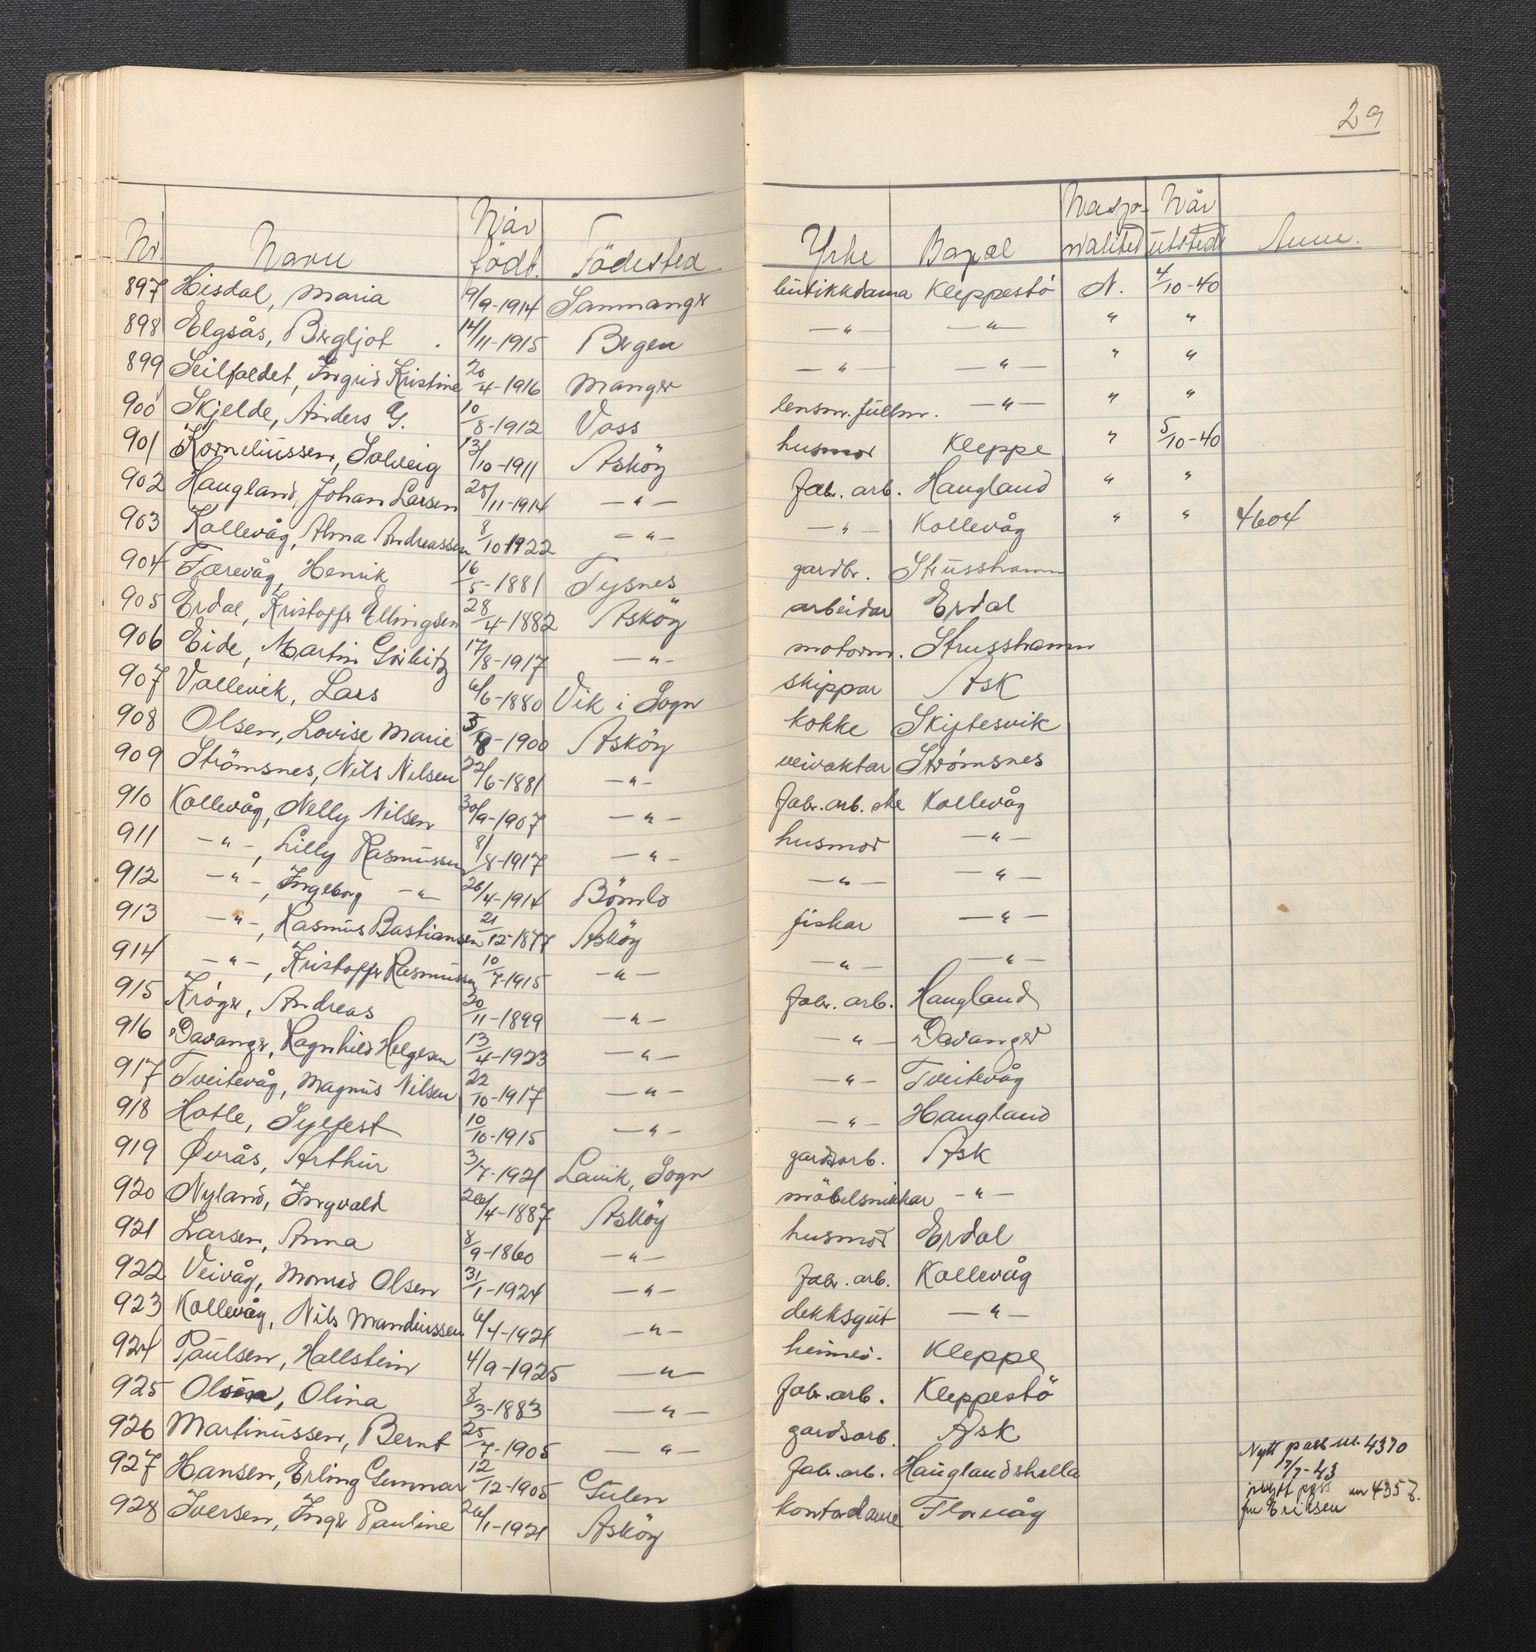 29
Nr. Navn Når født. Födested Yrke Bopel Nasjonalitet Når utstedt Anm.
897 Hisdal, Maria 19/9-1914 Samnanger butikkdama Kleppestö N. 4/10-40
898 Elgsås, Bergljot 14/11-1915 Bergen —"— —"— " "
899 Seilfaldet, Ingrid Kristine 20/4-1916 Manger —"— —"— " "
900 Skjelde, Anders G. 10/8-1912 Voss lensm. fullm. —"— " "
901 Korneliussen, Solveig 13/10-1911 Asköy husmor Kleppe " 5/10-40
902 Haugland, Johan Larsen 28/11-1914 —"— fabr. arb. Haugland " "
903 Kollevåg, Alma Andreassen 8/10-1922 —"— —"— Kollevåg " " 4604
904 Færevåg, Henrik 16/5-1881 Tysnes gardbr. Strusshamn
905 Erdal, Kristoffer Ellingsen 28/4-1882 Asköy arbeidar Erdal
906 Eide, Martin 17/8-1917 —"— motorm. Strusshamn
907 Vallevik, Lars 6/6-1880 Vik i Sogn skippar Ask
908 Olsen, Lovise Marie 5/8-1900 Asköy kokke Skiftesvik
909 Strömsnes, Nils Nilsen 22/6-1881 —"— veivaktar Strømsnes
910 Kollevåg, Nelly Nilsen 30/9-1907 —"— fabr. arb.ske Kollevåg
911 —"—, Lilly Rasmussen 8/8-1917 —"— husmor —"—
912 —"—, Ingeborg —"— 26/4-1914 Bömlo —"— —"—
913 —"—, Rasmus Bastiansen 21/12-1877 Asköy fiskar —"—
914 —"—, Kristoffer Rasmussen 10/7-1915 —"— —"— —"—
915 Kröger, Andreas 20/11-1899 —"— fabr. arb. Haugland
916 Davanger, Ragnhild Helgesen 13/4-1923 —"— —"— Davanger
917 Tveitevåg, Magnus Nilsen 22/10-1917 —"— —"— Tveitevåg
918 Hatle, Sylfest 10/10-1915 —"— —"— Haugland
919 Øvrås, Arthur 3/7-1921 Lavik, Sogn gardsarb. Ask
920 Nyland, Ingvald 26/4-1887 Asköy möbelsnikkar —"—
921 Larsen, Anna 8/9-1860 —"— husmor Erdal
922 Veivåg, Monrad Olsen 31/1-1924 —"— fabr. arb. Kollevåg
923 Kollevåg, Nils Mandiussen 6/4-1921 —"— dekksgut —"—
924 Paulsen, Hallstein 4/9-1925 —"— heimev. Kleppe
925 Olsen, Olina 8/3-1883 —"— fabr. arb. Kleppestö
926 Martinussen, Bernt 25/7-1905 —"— gardsarb. Ask
927 Hansen, Erling Gunnar 12/12-1905 Gulen fabr. arb. Hauglandshella Nytt pass nr. 4370 7/7-43
928 Iversen, Inger Pauline 26/1-1921 Asköy kontordame Florvåg nytt pass nr 4357. fru Eriksen